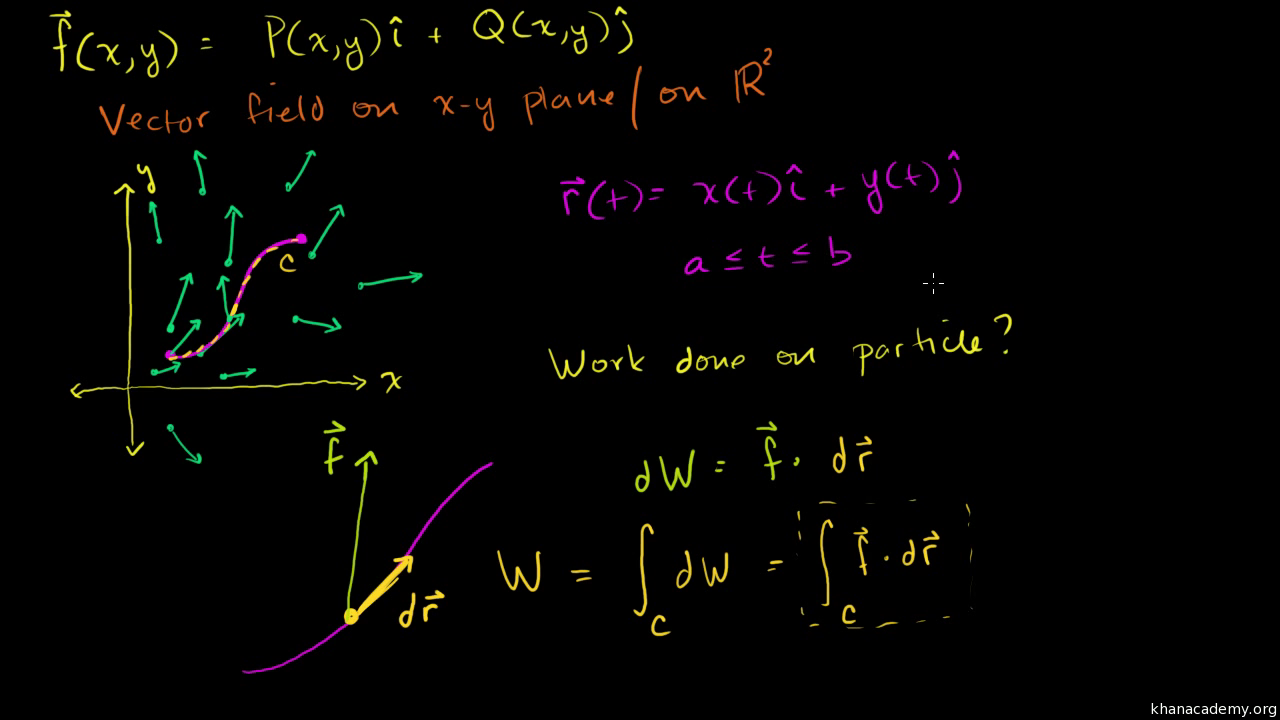 f⃗(x,y) = P(x,y)î + Q(x,y)ĵ
Vector field on x-y plane/on ℝ²
y
r⃗(t) = x(t)î + y(t)ĵ
c
a ≤ t ≤ b
Work done on particle?
x
f⃗
dW = f⃗ · dr⃗
W = ∫_C dW = ∫_C f⃗ · dr⃗
dr⃗
khanacademy.org